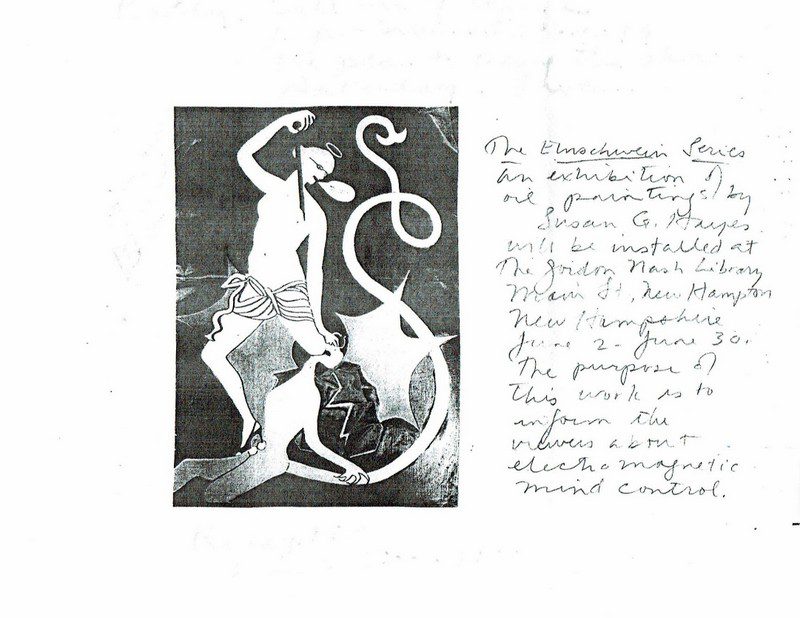 The Emschwein Series
an exhibition of
oil paintings by
Susan G. Hayes
will be installed at
The Gordon Nash Library
Main St, New Hampton
New Hampshire
June 2 - June 30.
The purpose of
this work is to
inform the
viewers about
electromagnetic
mind control.